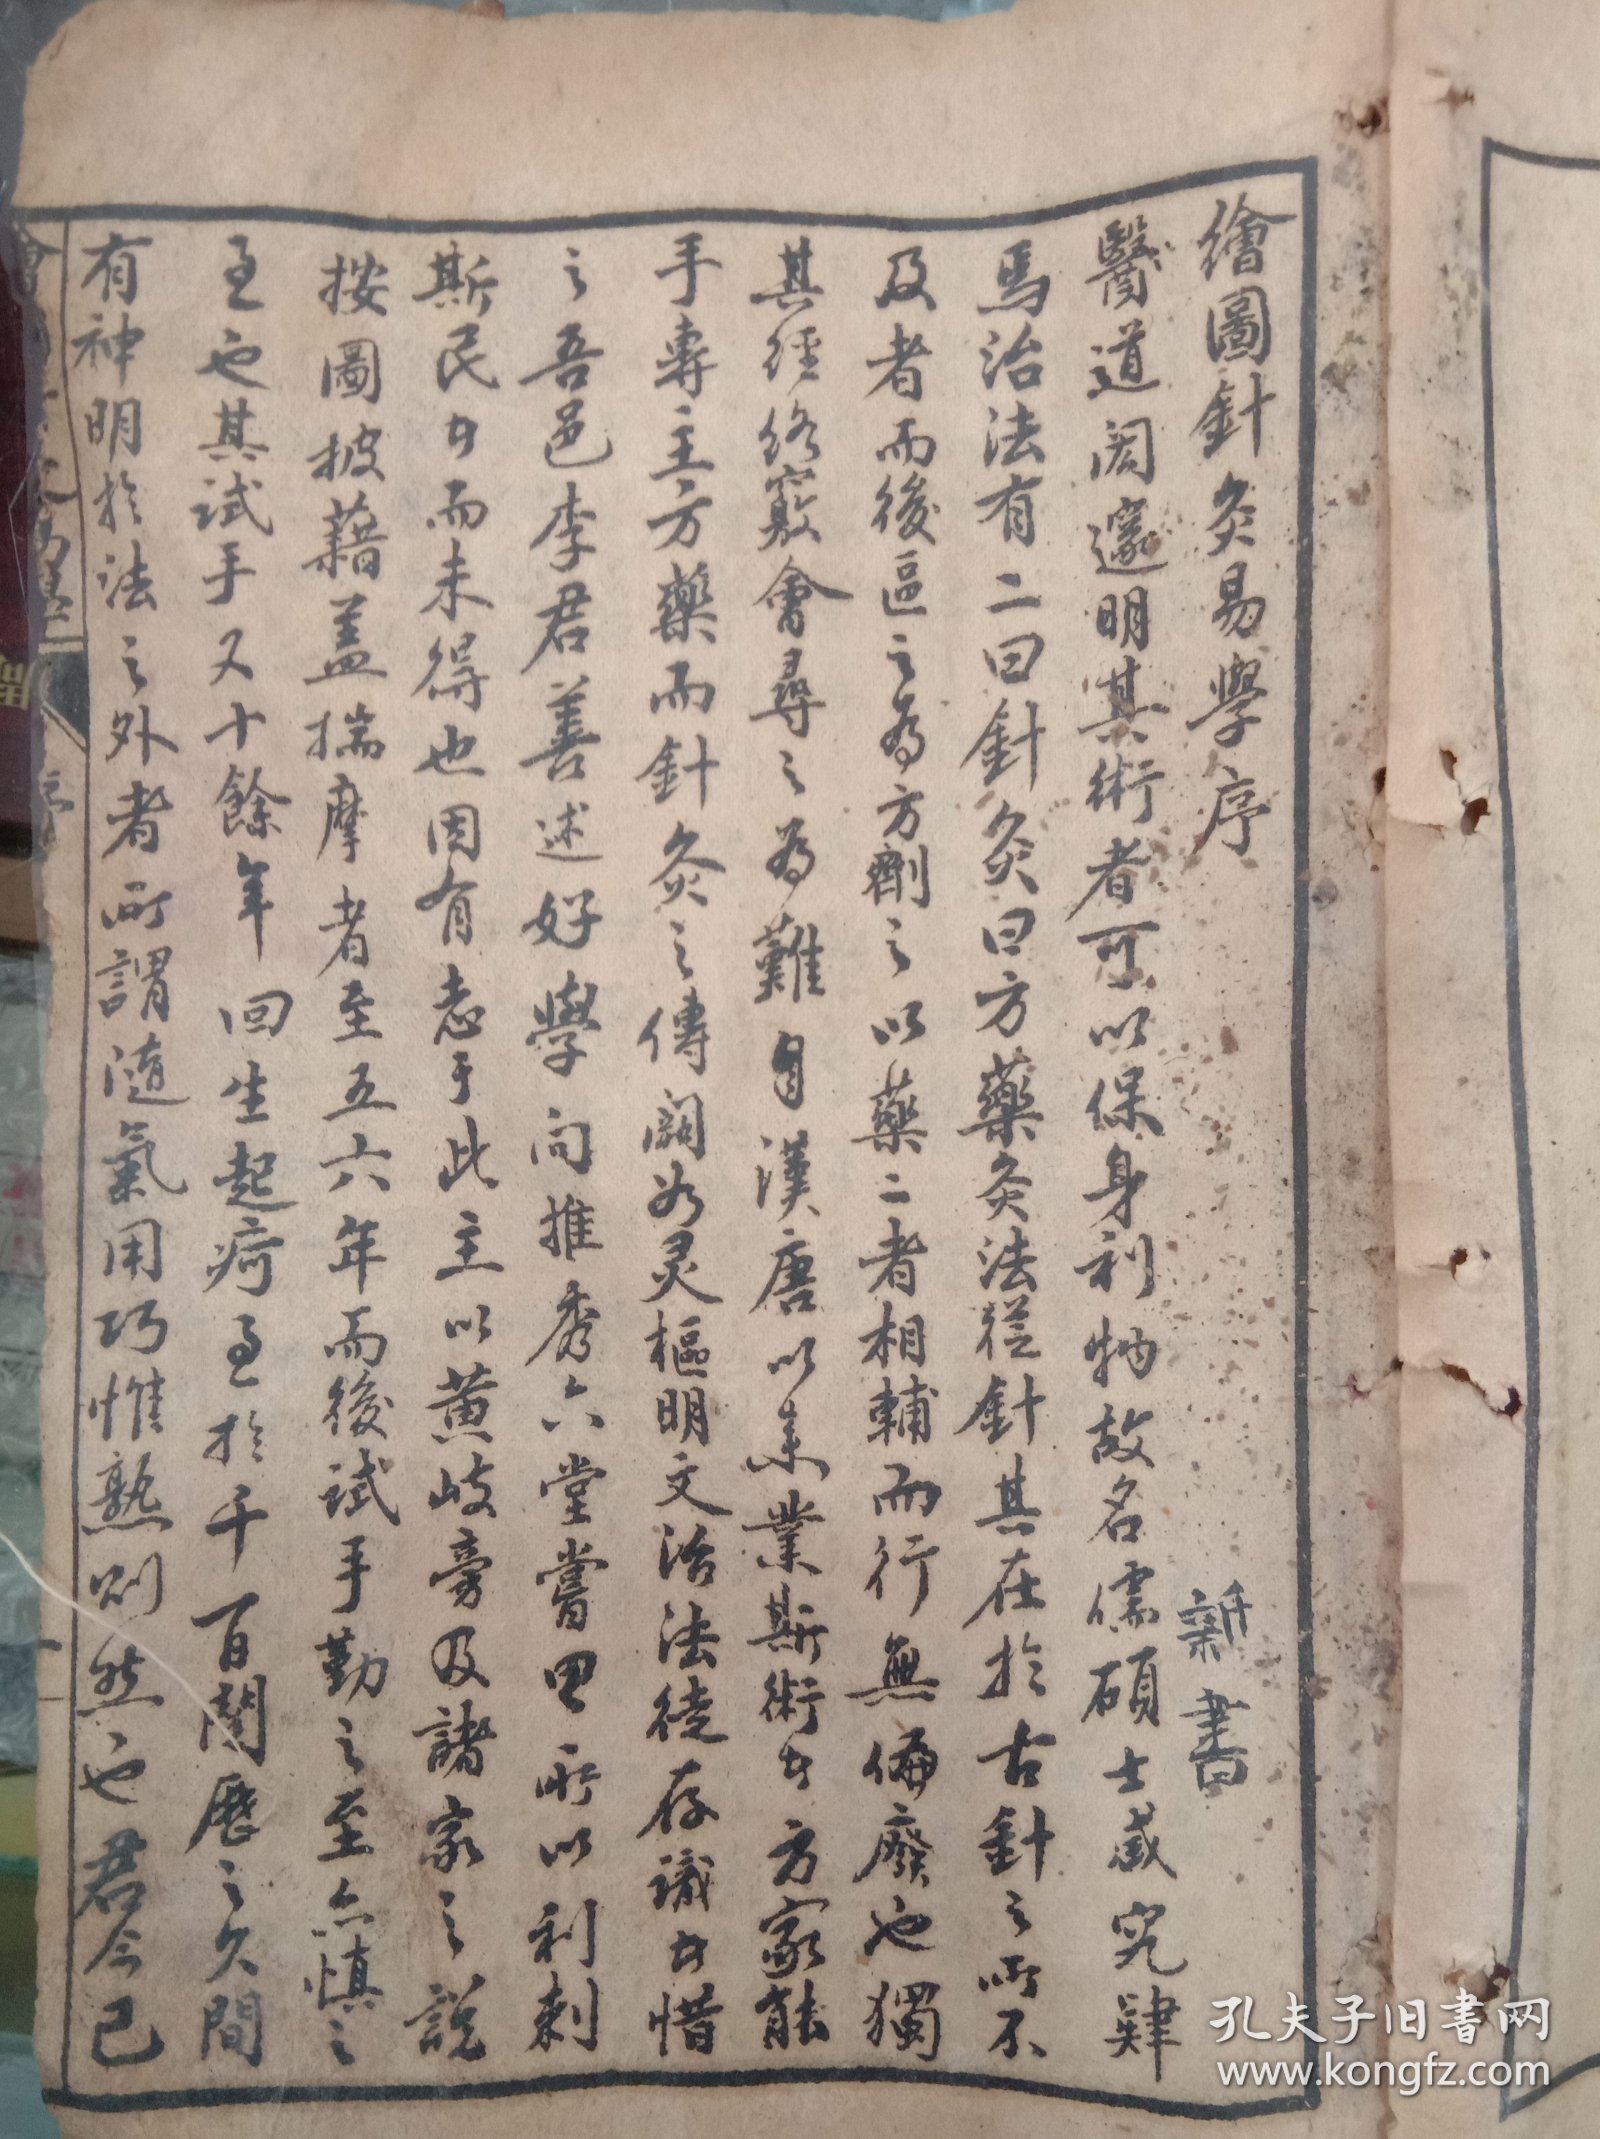 繪圖針灸易學序
新書
醫道閎邃明其術者可以保身利物故名儒碩士咸究肄
焉治法有二曰針灸曰方藥灸法從針其在於古針之所不
及者而後區之為方劑之以藥二者相輔而行無偏廢也獨
其經絡竅會尋之為難自漢唐以來業斯術者方家能
手專主方藥而針灸之傳闕如灵樞明文治法徒存識者惜
之吾邑李君善述好學問推秀六堂嘗思所以利
斯民者而未得也因有志于此主以黃岐旁及諸家之說
按圖披藉盖揣摩者至五六年而後試手勤之至亦慎之
至也其試手又十餘年回生起痾至於千百閱歷之久間
有神明於法之外者所謂隨氣用巧惟熟則然也君今已
孔夫子旧书网
www.kongfz.com